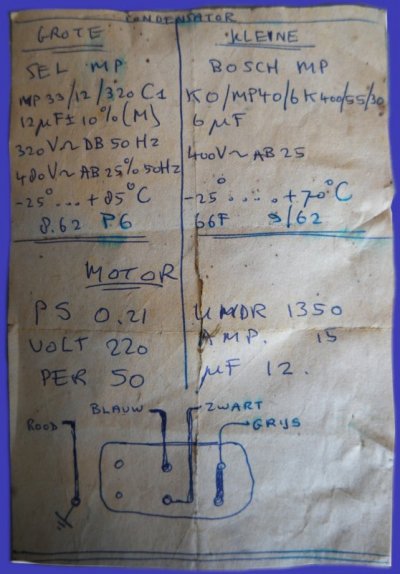 CONDENSATOR
GROTE
SEL MP
MP 33/12/320 C1
12µF±10% (M)
320V~DB 50HZ
480V~AB 25% 50HZ
-25° ... +85°C
8.62 P6
KLEINE
BOSCH MP
KO/MP40/6K400/55/30
6 µF
400V~AB 25
-25° .... +70°C
66F S/62
MOTOR
PS 0.21
VOLT 220
PER 50
UMDR 1350
AMP. 15
µF 12.
ROOD
BLAUW
ZWART
GRIJS